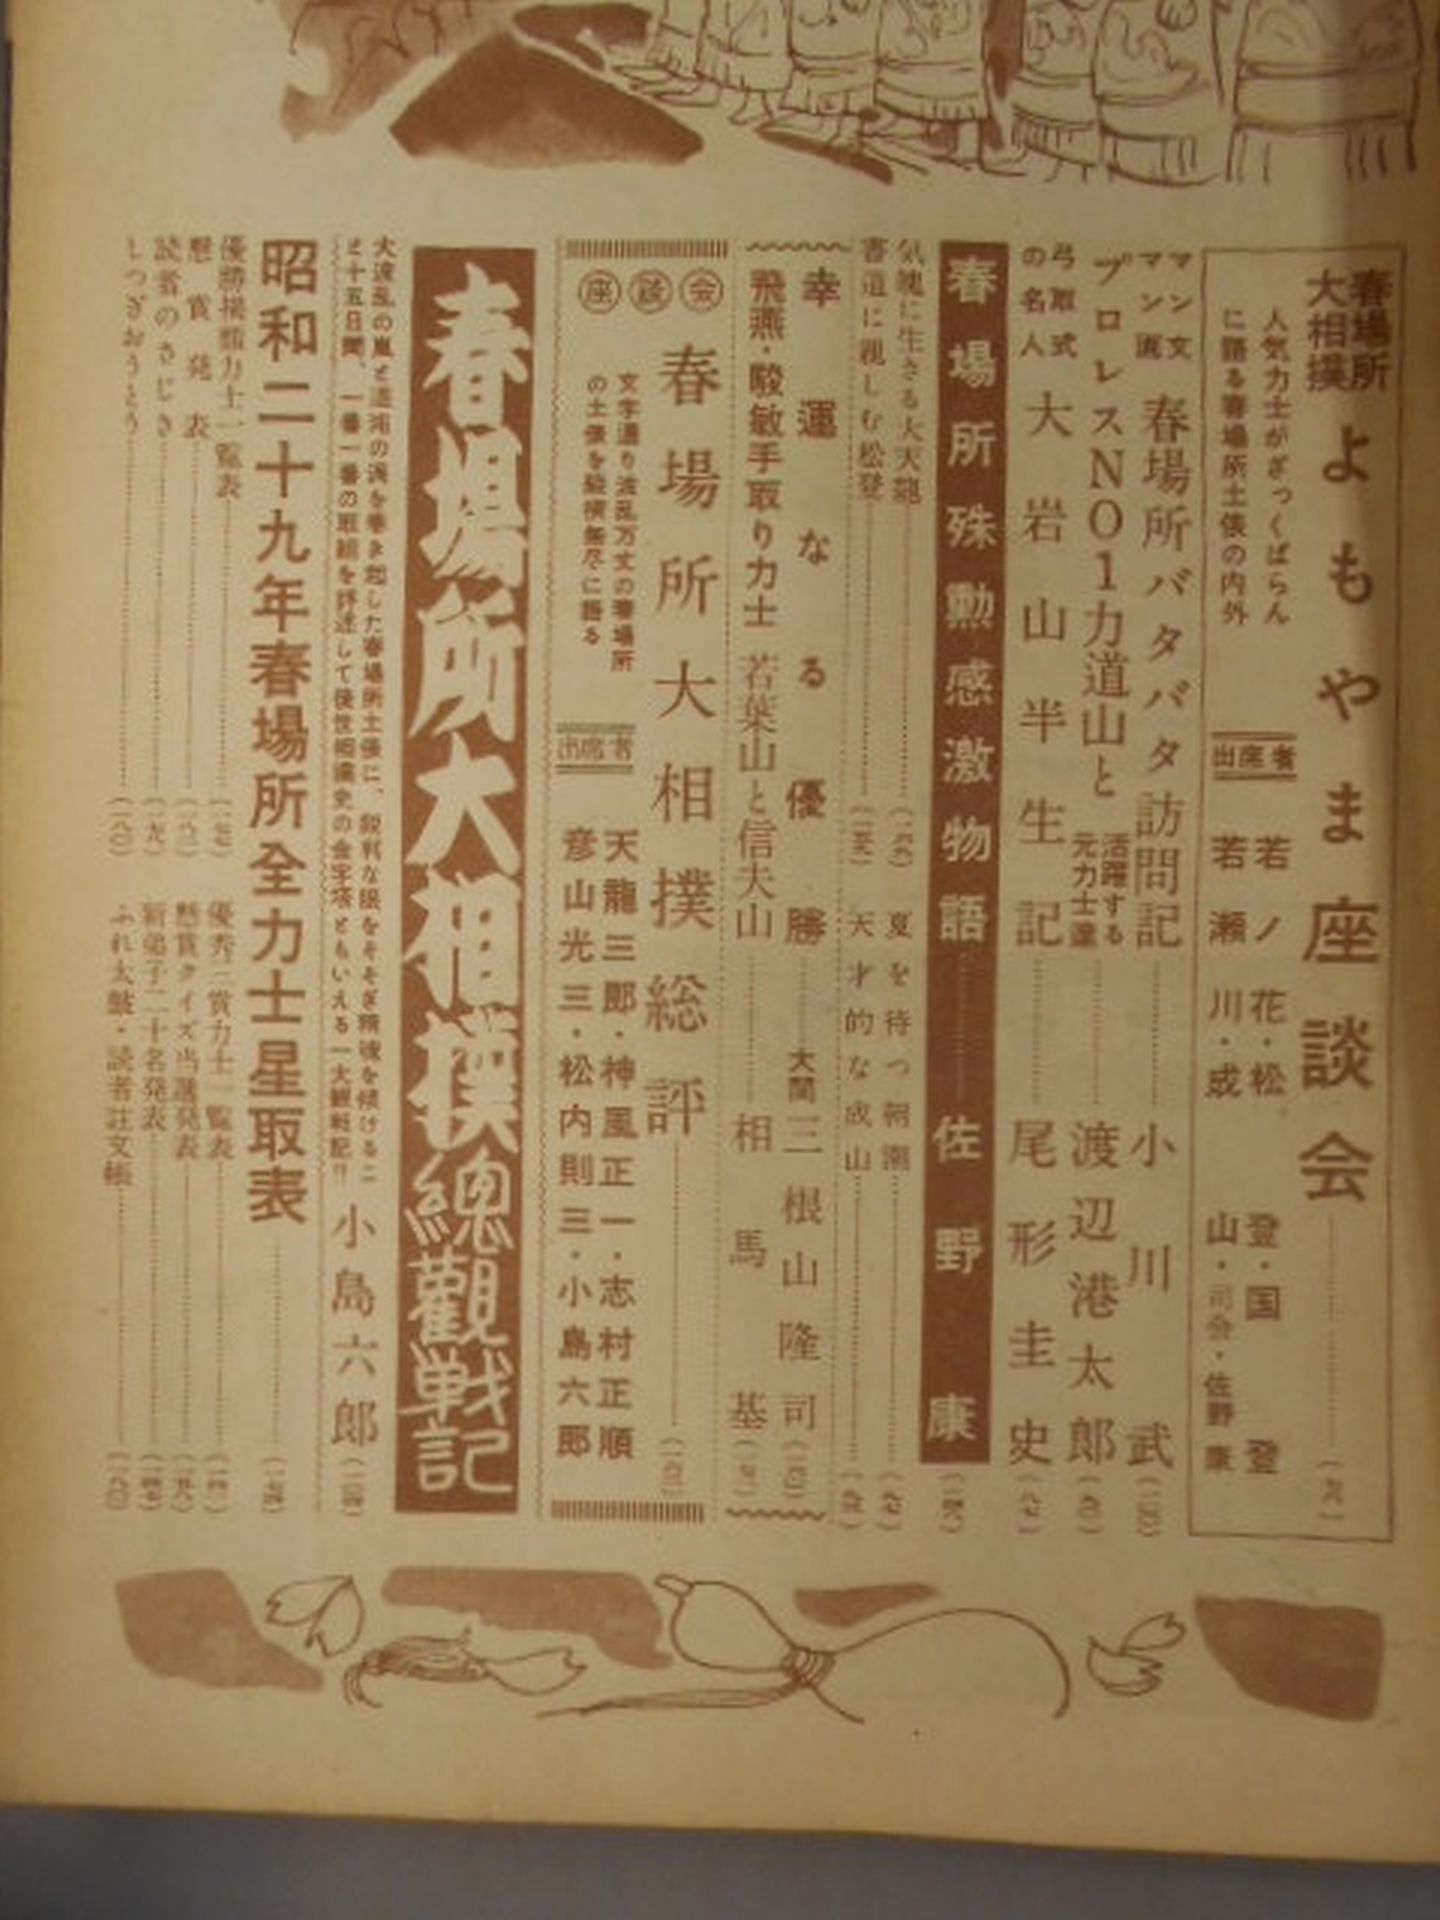 春場所
大相撲
よもやま座談会
人気力士がざっくばらん
に語る春場所土俵の内外
出席者
若ノ花・松登・国登
若瀬川・成山・司会・佐野康
マン文
マン画
春場所バタバタ訪問記
小川武
プロレスNO1力道山と
活躍する
元力士達
渡辺港太郎
弓取式
の名人
大岩山半生記
尾形圭史
春場所殊勲感激物語
佐野康
気魄に生きる大天龍
夏を待つ朝潮
書道に親しむ松登
天才的な成山
幸運なる優勝
大関
三根山隆司
飛燕・駿敏手取り力士
若葉山と信夫山
相馬基
座談会
春場所大相撲総評
文字通り波乱万丈の春場所
の土俵を縦横無尽に語る
出席者
天龍三郎・神風正一・志村正順
彦山光三・松内則三・小島六郎
春場所大相撲總觀戦記
大波乱の嵐と道場の渦を巻き起した春場所土俵に、鋭利な眼をそそぎ精魂を傾けるこ
と十五日間、一番一番の取組を評述して後世相撲史の金字塔ともいえる一大観戦記!!
小島六郎
昭和二十九年春場所全力士星取表
優勝掲額力士一覧表
優秀三賞力士一覧表
懸賞発表
懸賞クイズ当選発表
読者のさじき
新弟子二十名発表
しつぎおうとう
ふれ太鼓・読者註文帳